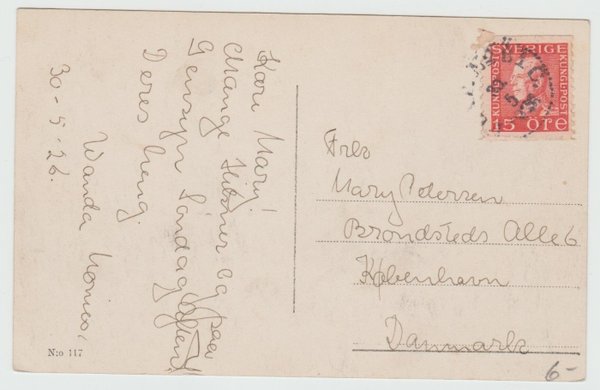 Kære Mary!
Mange Hilsner og paa
Gensyn Søndag Aften
Deres heng.
Wanda
30-5-26.
N:o 117
SVERIGE
KUNGL·POST
KUNGL·POST
15 ÖRE
Mary Petersen
Brøndsteds Alle 6
København
Danmark
6-